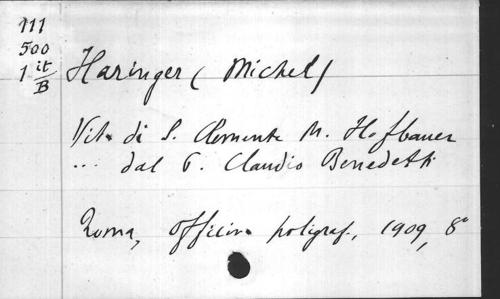 111
500
1 it/B
Haringer (Michel)
Vita di S. Clemente M. Hofbauer
... dal P. Claudio Benedetti
Roma, officina poligraf., 1909, 8°